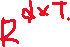 R^{d×T}.